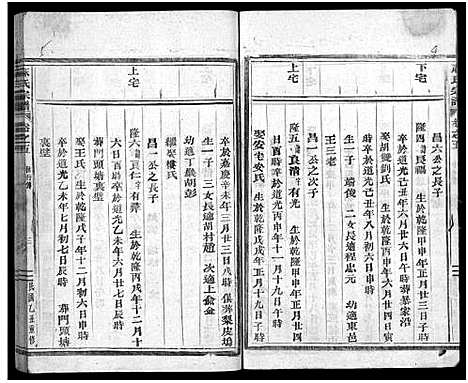 下宅
昌六公之長子
隆四 良福 生於乾隆甲申年正月廿三日子時
卒於道光己丑年六月廿六日
娶胡雙劉氏
生於乾隆
卒於道光己丑年八月初四日亥時
生一子 端俊 二女長適程忠元 幼適
王三老
昌一公之次子
隆五 良清 有光 生於乾隆甲申年
卒於道光丙申年十一月十九日
娶安宅安氏 生於乾隆戊戌年正月十九日
上宅
卒於嘉慶辛未年三月廿三日戌時 俱葬梨皮塢
生一子 三女長適胡村趙 次適上俞金
幼適丁嚴胡彭
繼娶樓氏
昌一公之長子
隆六 良仁 有葬 生於乾隆丙戌年十二月十
六日酉時卒於道光乙未年六月廿七日辰時
葬門頭塘裏壟
娶王氏 生於乾隆戊子年十二月初六日申時
卒於道光乙未年七月初七日辰時 葬門頭塘
裏壟
民國乙丑重修